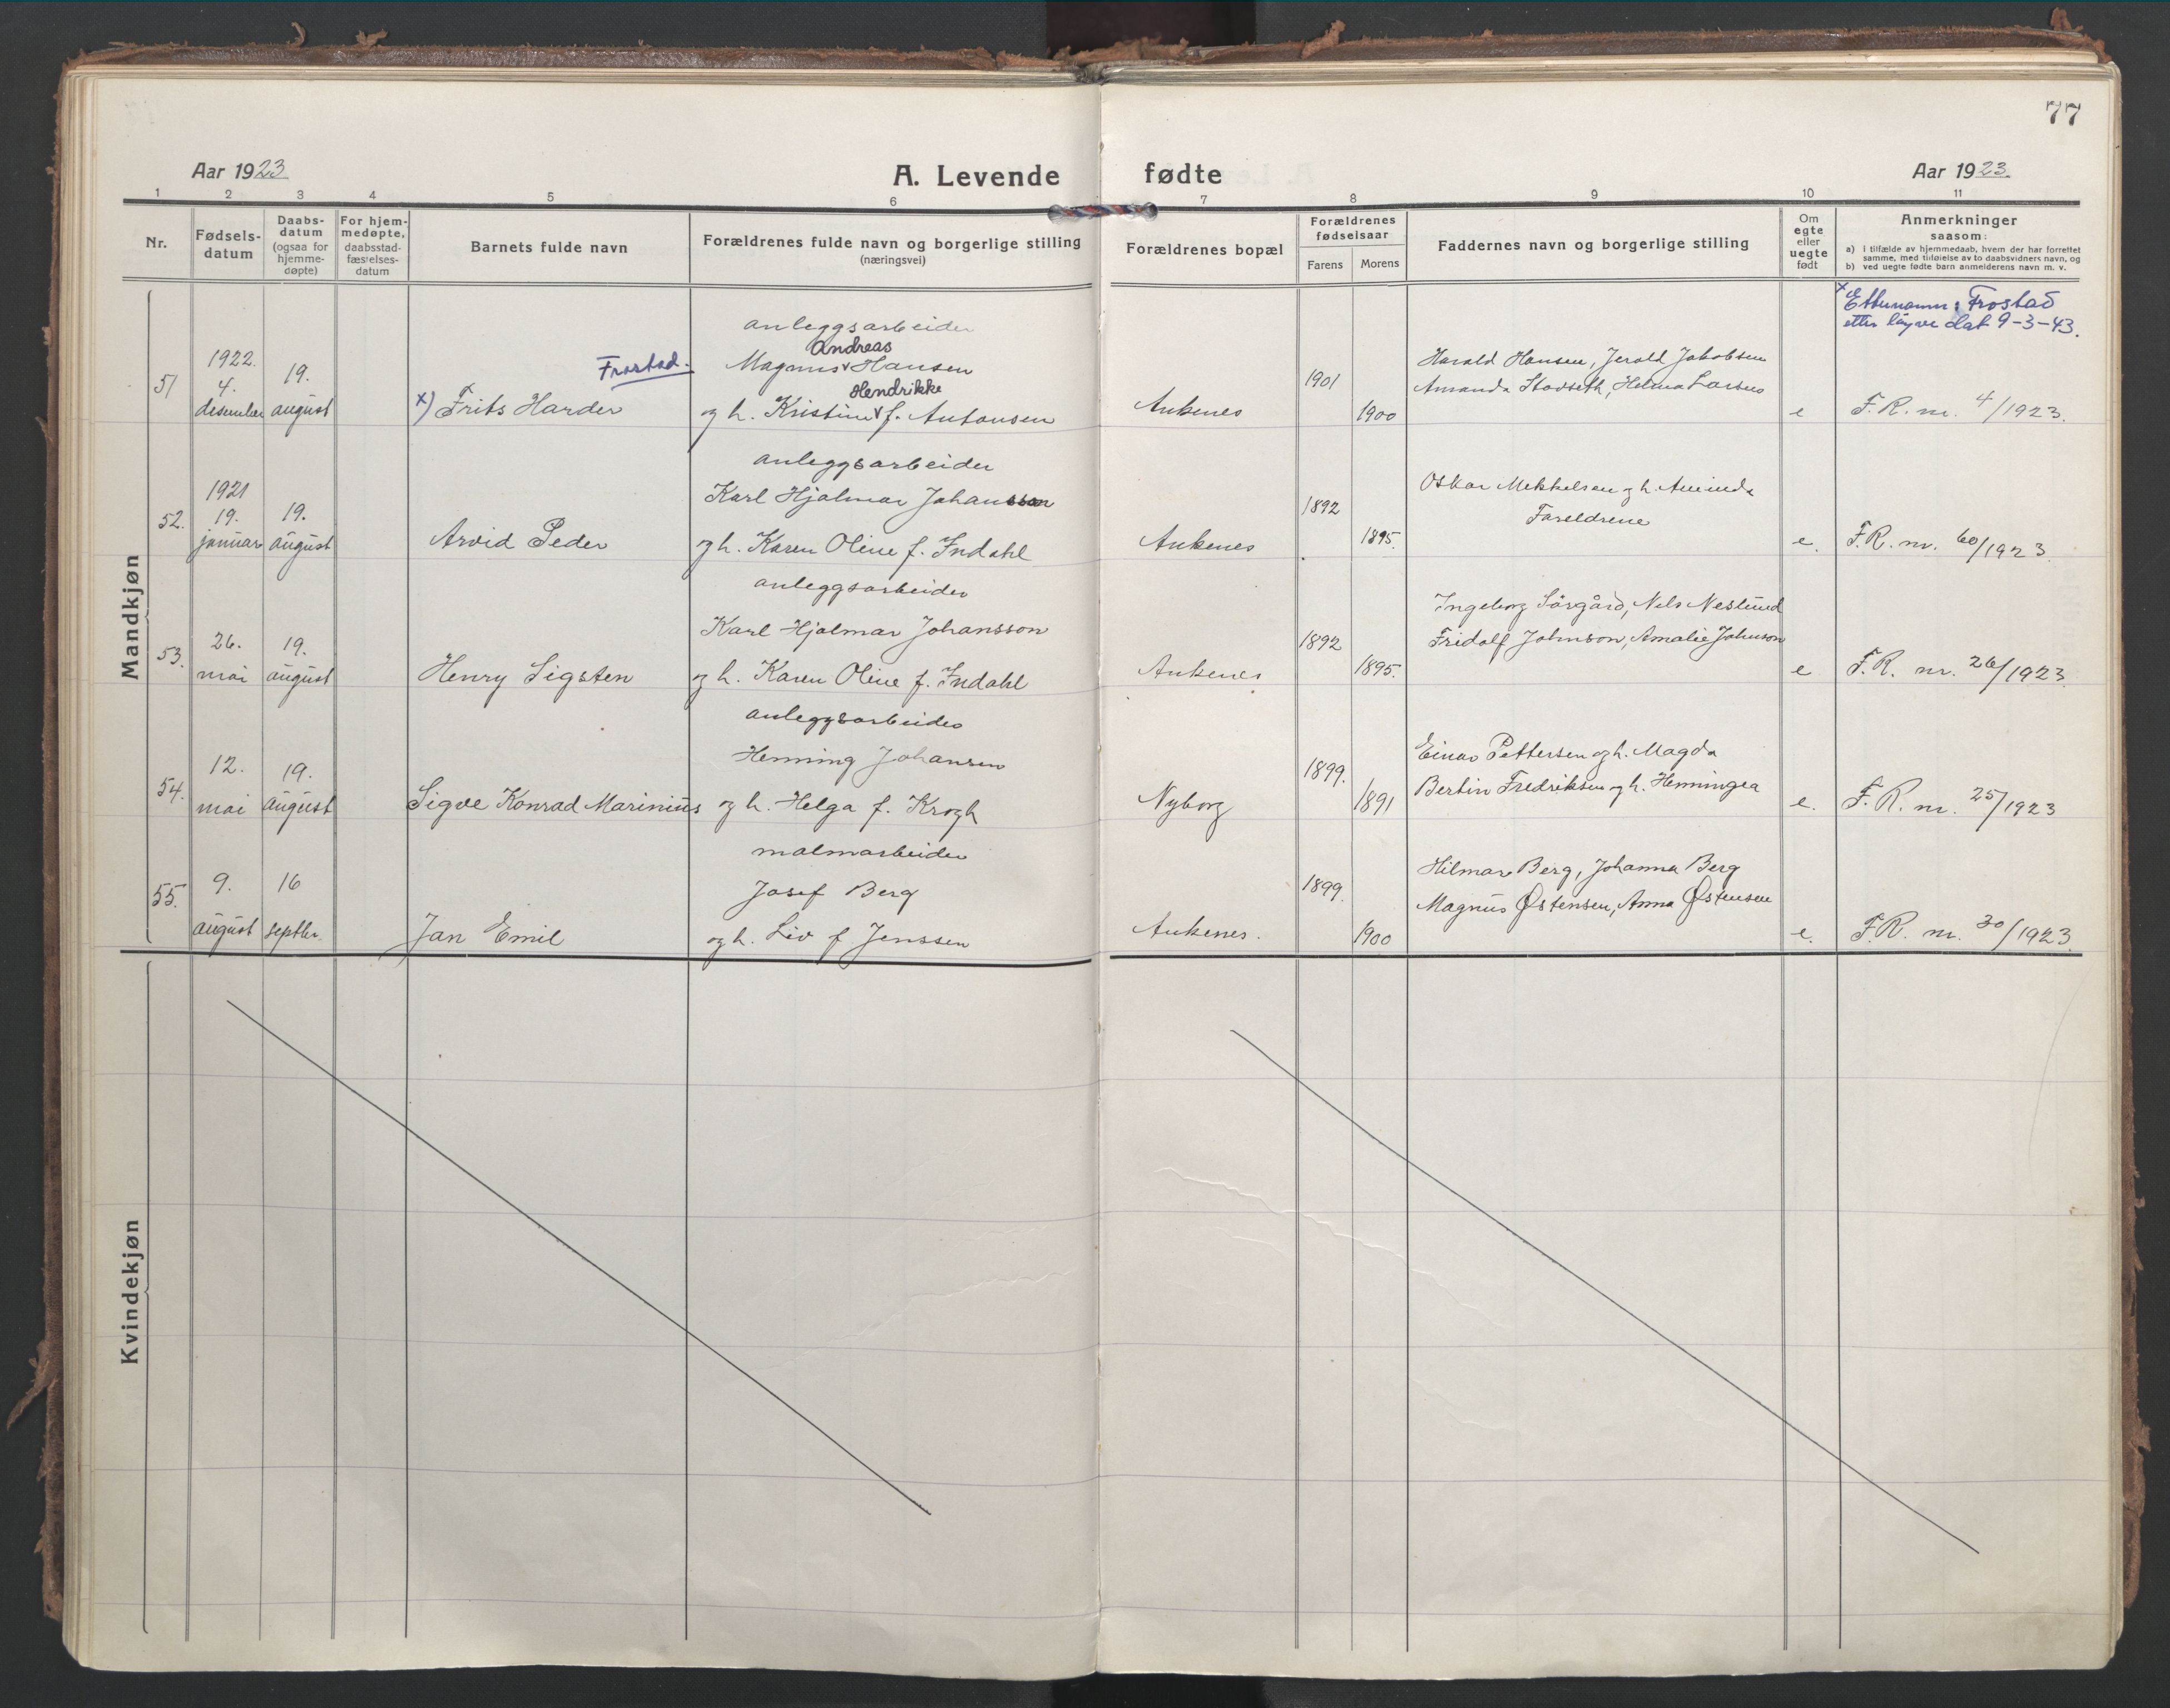 77
Aar 1923.
A. Levende fødte
Aar 1923.
1 2 3 4 5 6 7 8 9 10 11
Nr.
Fødsels-
datum
Daabs-
datum
(ogsaa for
hjemme-
døpte)
For hjem-
medøpte,
daabsstad-
fæstelses-
datum
Barnets fulde navn
Forældrenes fulde navn og borgerlige stilling
(næringsvei)
Forældrenes bopæl
Forældrenes
fødselsaar
Farens
Morens
Faddernes navn og borgerlige stilling
Om
egte
eller
uegte
født
Anmerkninger
saasom:
a) i tilfælde av hjemmedaab, hvem der har forrettet
samme, med tilføielse av to daabsvidners navn, og
b) ved uegte fødte barn anmelderens navn m. v.
Mandkjøn
51
1922.
4.
desember
19.
august
x) Frits Harder
Frostad.
anleggsarbeider
Andreas
Magnus Hansen
Hendrikke
og h. Kristine f. Antonsen
Ankenes
1901
1900
Harald Hansen, Jerold Jakobsen
Amanda Stavseth, Helma Larsen
e
x Etternamn: Frostad
etter løyve dat 9-3-43.
F. R. nr. 4/1923.
52.
1921
19.
januar
19.
august
Arvid Peder
anleggsarbeider
Karl Hjalmar Johansson
og h. Karen Oline f. Indahl
Ankenes
1892
1895.
Oskar Mekkelsen og h. Aminda
Foreldrene
e.
F. R. nr. 60/1923.
53.
26.
mai
19.
august
Henry Sigsten
anleggsarbeider
Karl Hjalmar Johansson
og h. Karen Oline f. Indahl
Ankenes
1892
1895.
Ingeborg Sørgård, Nels Neslund
Fridolf Johnson, Amalie Johnson
e
F. R. nr. 26/1923.
54.
12.
mai
19.
august
Sigve Konrad Marinius
anleggsarbeider
Henning Johansen
og h. Helga f. Krogh
Nyborg
1899.
1891
Einar Pettersen og h. Magda
Bertin Fredriksen og h. Henningea
e.
F. R. nr. 25/1923
55.
9.
august
16
septbr.
Jan Emil
malmarbeider
Josef Berg
og h. Liv f. Jenssen
Ankenes.
1899.
1900
Hilmar Berg, Johanna Berg
Magnus Østensen, Anna Østensen
e.
F. R. nr. 30/1923.
Kvindekjøn